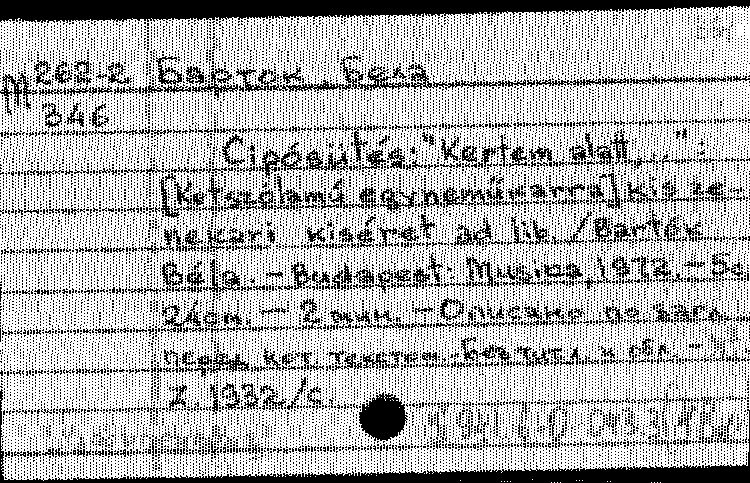 М 262-2 Барток, Бела
346
Cipósütés: "Kertem alatt..." :
[Kétszólamú egyneműkarra] kis ze-
nekari kíséret ad lib. / Bartók
Béla. - Budapest: Musica, 1972. - 5с.
24см. - 2 мин. - Описано по загл.
перед нот. текстом. Без тит. л. и обл. -
Z. 1932/с.